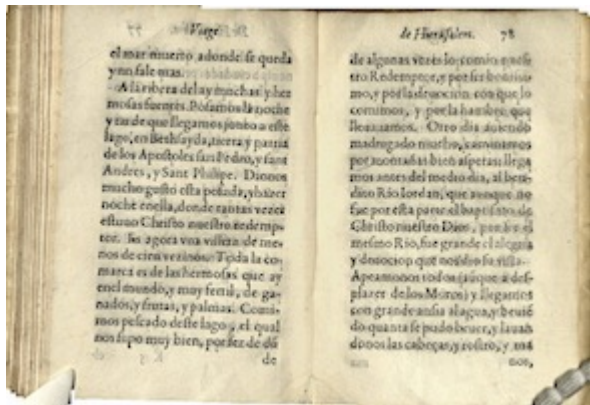 Viage
el mar muerto adonde se queda
y no sale mas.
A la ribera del ay muchas y her
mosas fuentes. Posamos la noche
y tarde que llegamos junto a este
lago, en Bethsayda, tierra y patria
de los Apostoles san Pedro, y sant
Andres, y Sant Philipe. Dionos
mucho gusto esta posada, y hazer
noche en ella, donde tantas vezes
estuuo Christo nuestro redemp-
tor. Es agora vna villeta de me-
nos de cien vezinos. Toda la co-
marca es de las hermosas que ay
en el mundo, y muy fertil, de ga-
nados, y frutas, y palmas. Comi-
mos pescado deste lago, el qual
nos supo muy bien, por ser de dō
de
de Hierusalem. 78
de algunas vezes lo comio nues-
tro Redemptor, y por ser bonissi-
mo, y por la deuocion con que lo
comimos, y por la hambre que
lleuauamos. Otro dia auiendo
madrugado mucho, caminamos
por montañas bien asperas: llega
mos antes del medio dia, al ben-
dito Rio Iordan, que aunque no
fue por esta parte el baptismo de
Christo nuestro Dios, por ser el
mesmo Rio, fue grande el alegria
y deuocion que nos dio su vista.
Apeamonos todos (aũque a des-
plazer de los Moros) y llegamos
con grande ansia al agua, y beuiē
do quanta se pudo beuer, y lauan
donos las cabeças, y rostro, y ma
nos,